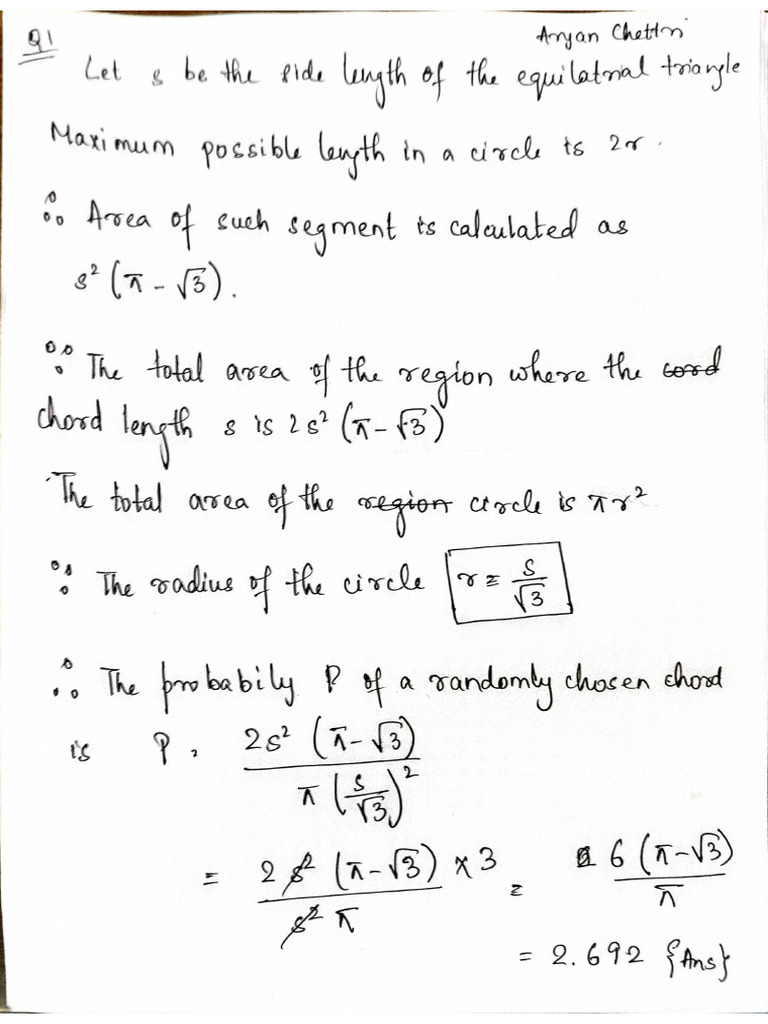 Q1
Aryan Chettri
Let s be the side length of the equilatrial triangle
Maximum possible length in a circle is 2r.
∴ Area of such segment is calculated as
s² (π - √3).
∵ The total area of the region where the cord
chord length s is 2s² (π-√3)
The total area of the region circle is πr²
∴ The radius of the circle r = s/√3
∴ The probabily P of a randomly chosen chord
is P = 2s² (π-√3) / π (s/√3)²
= 2 s² (π-√3) × 3 / s² π = 6 (π-√3) / π
= 2.692 {Ans}